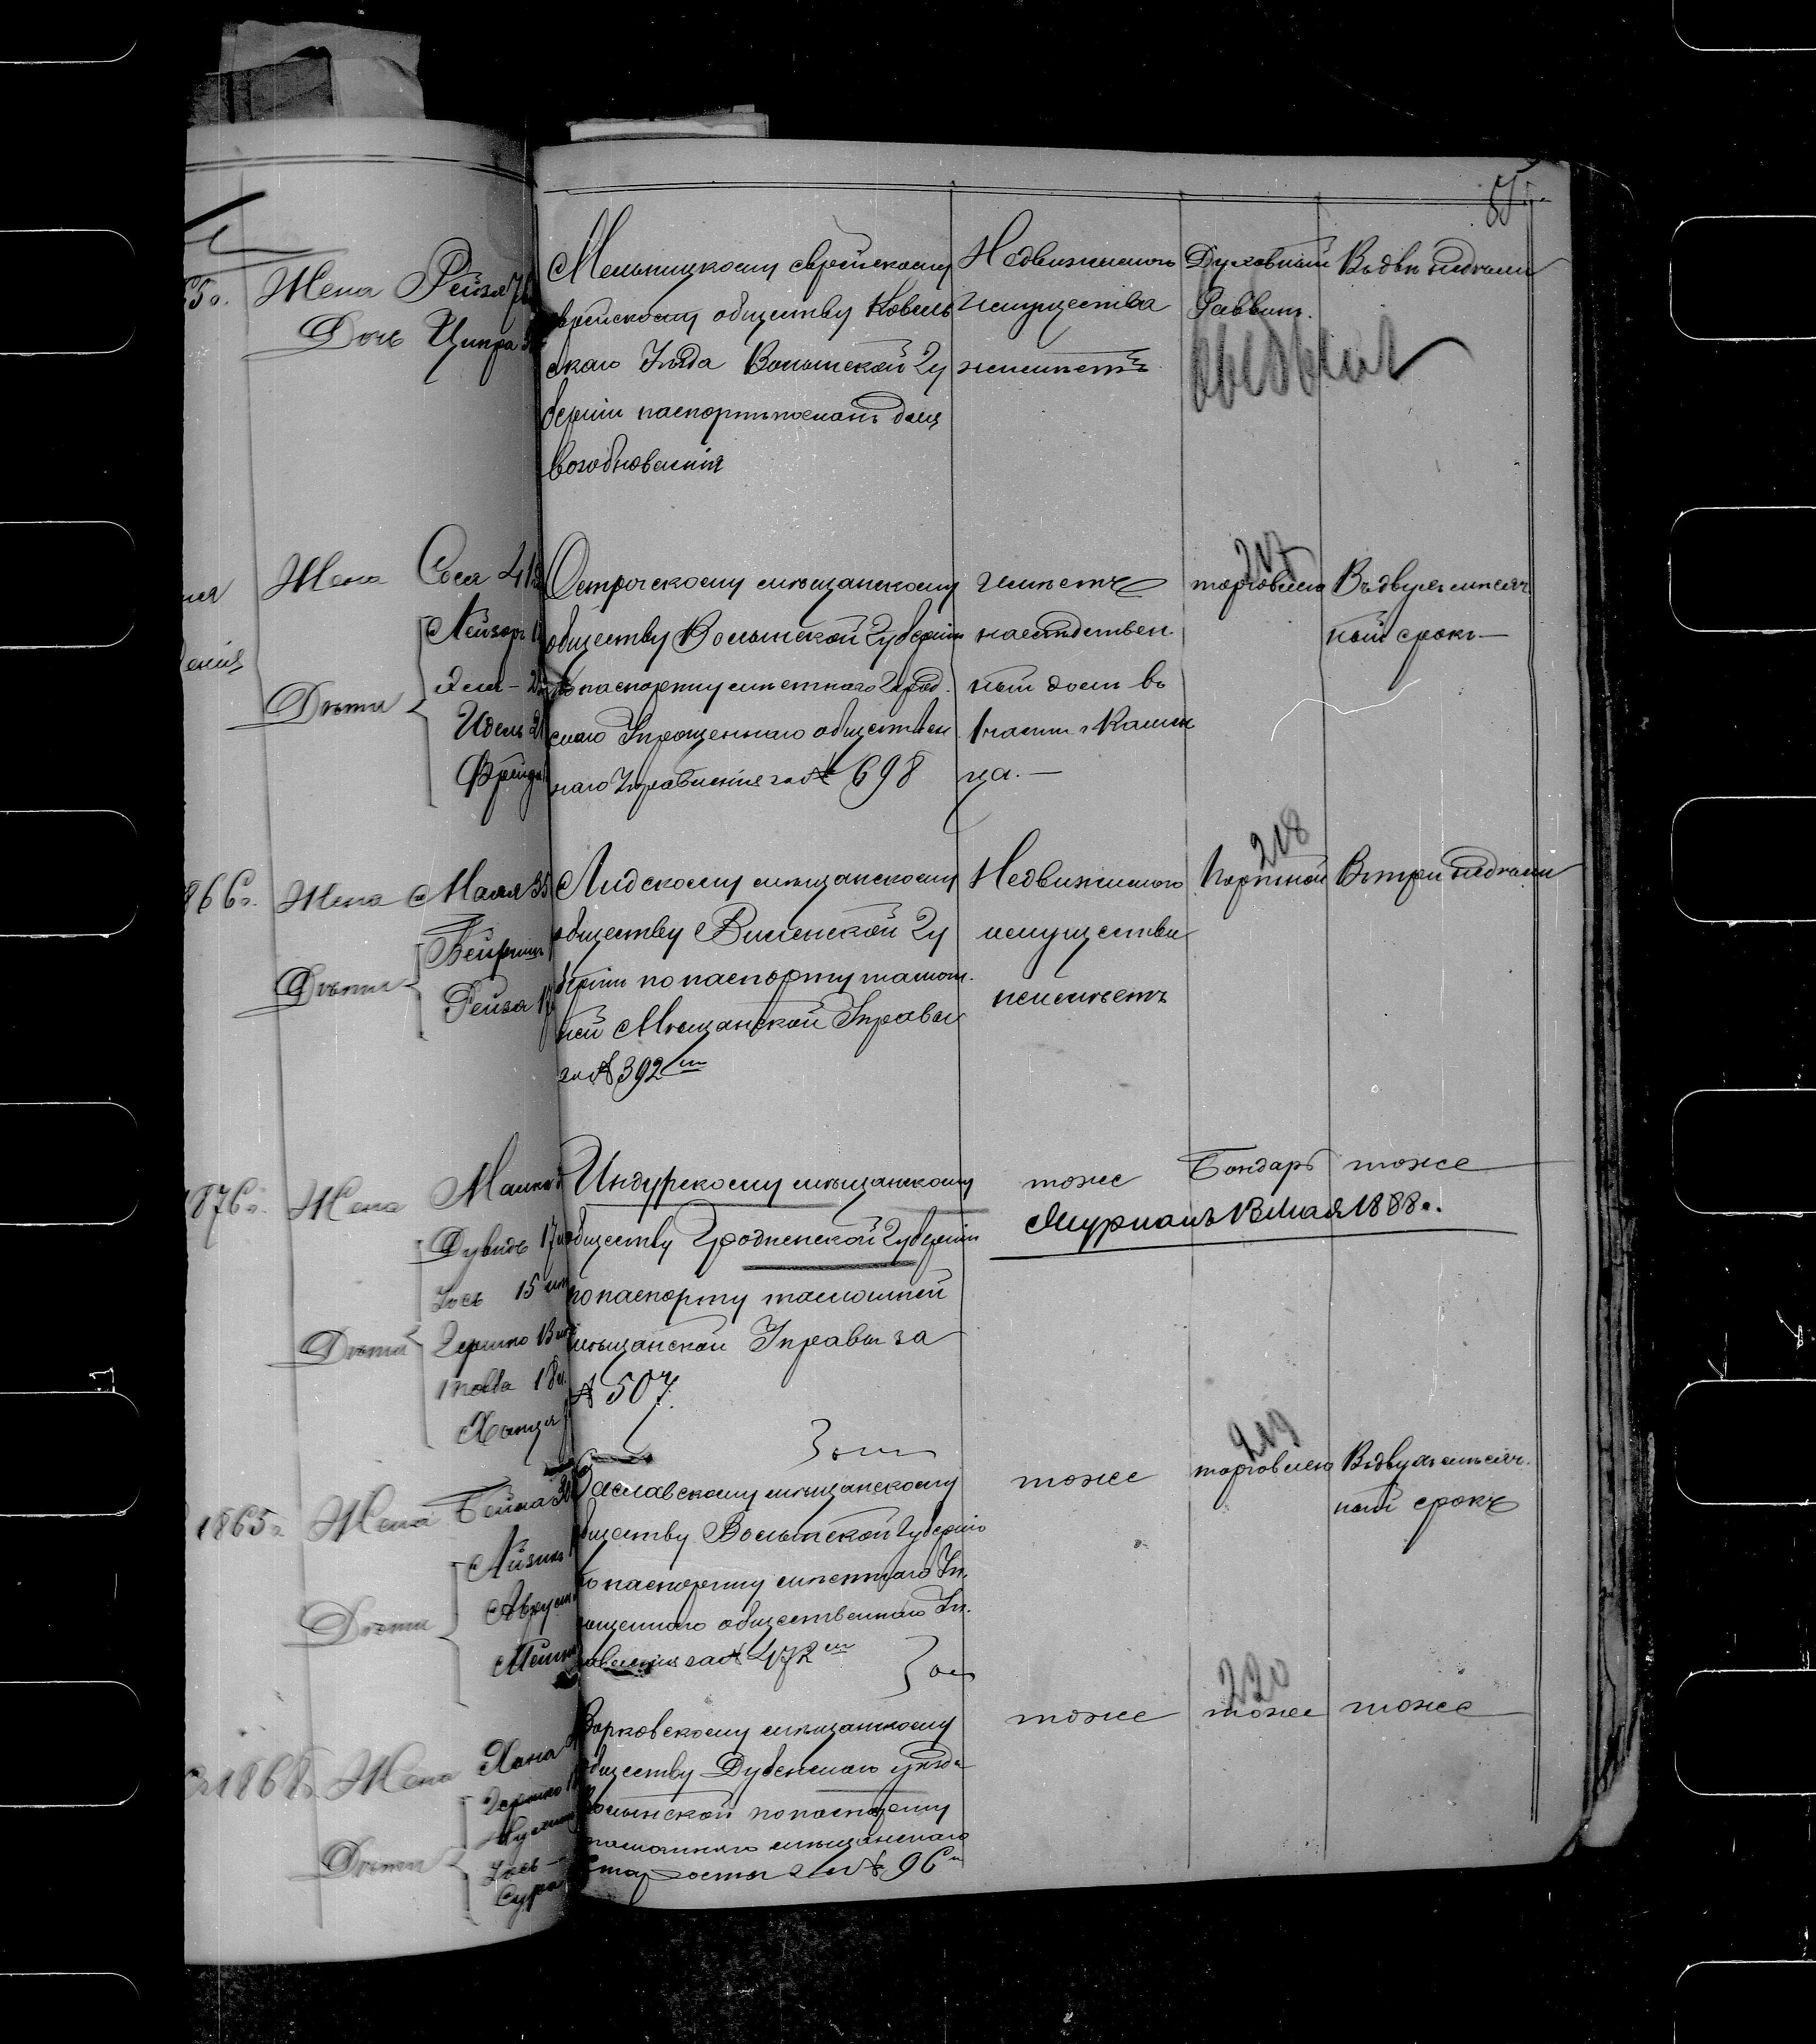 87.
55 г. Жена Рейзя 7
Дочь Ципра
Мельницкому еврейскому
еврейскому обществу Ковель
скаго Уѣзда Волынской Гу
берніи паспортъ посланъ для
возобновленія
Недвижимого
имущества
неимѣетъ
Духовный
Раввинъ.
выбылъ
Въ двѣ недѣли
Жена Сося 41
Дѣти
Лейзоръ
Идель 21
Фрейда
Острогскому мѣщанскому
обществу Волынской Губерніи
по паспорту мѣстнаго Город.
скаго Упрощеннаго обществен
наго Управленія за № 698
имѣетъ
наслѣдствен
ный домъ въ
1 части г. Камен
ца. —
217
торговлею
Въ двухъ мѣсяч
ный срокъ —
866 г. Жена Маля 35
Дѣти
Рейза 17
Лидскому мѣщанскому
обществу Виленской Гу
берніи по паспорту тамош.
ней Мѣщанской Управы
за № 392
Недвижимого
имущества
неимѣетъ
218
Портной
Въ три недѣли
1876 г. Жена Малка
Дѣти
Дувидъ 17
Іось 15
Гершко 13
Хантя
Индурскому мѣщанскому
обществу Гродненской Губерніи
по паспорту тамошней
мѣщанской Управы за
№ 507.
тоже
Бондарь
тоже
1888 г.
1865 г. Жена Бейла 30
Дѣти
Айзикъ
Заславскому мѣщанскому
обществу Волынской Губерніи
по паспорту мѣстнаго Уп.
рощеннаго общественнаго Уп.
равленія за № 472
тоже
219
торговлею
Въ двухъ мѣсяч.
ный срокъ
1868 Жена Хана
Дѣти
Гершко
Іось —
Сура
обществу Дубенскаго уѣзда
Волынской по паспорту
тамошняго мѣщанскаго
Старосты за № 96
тоже
220
тоже
тоже